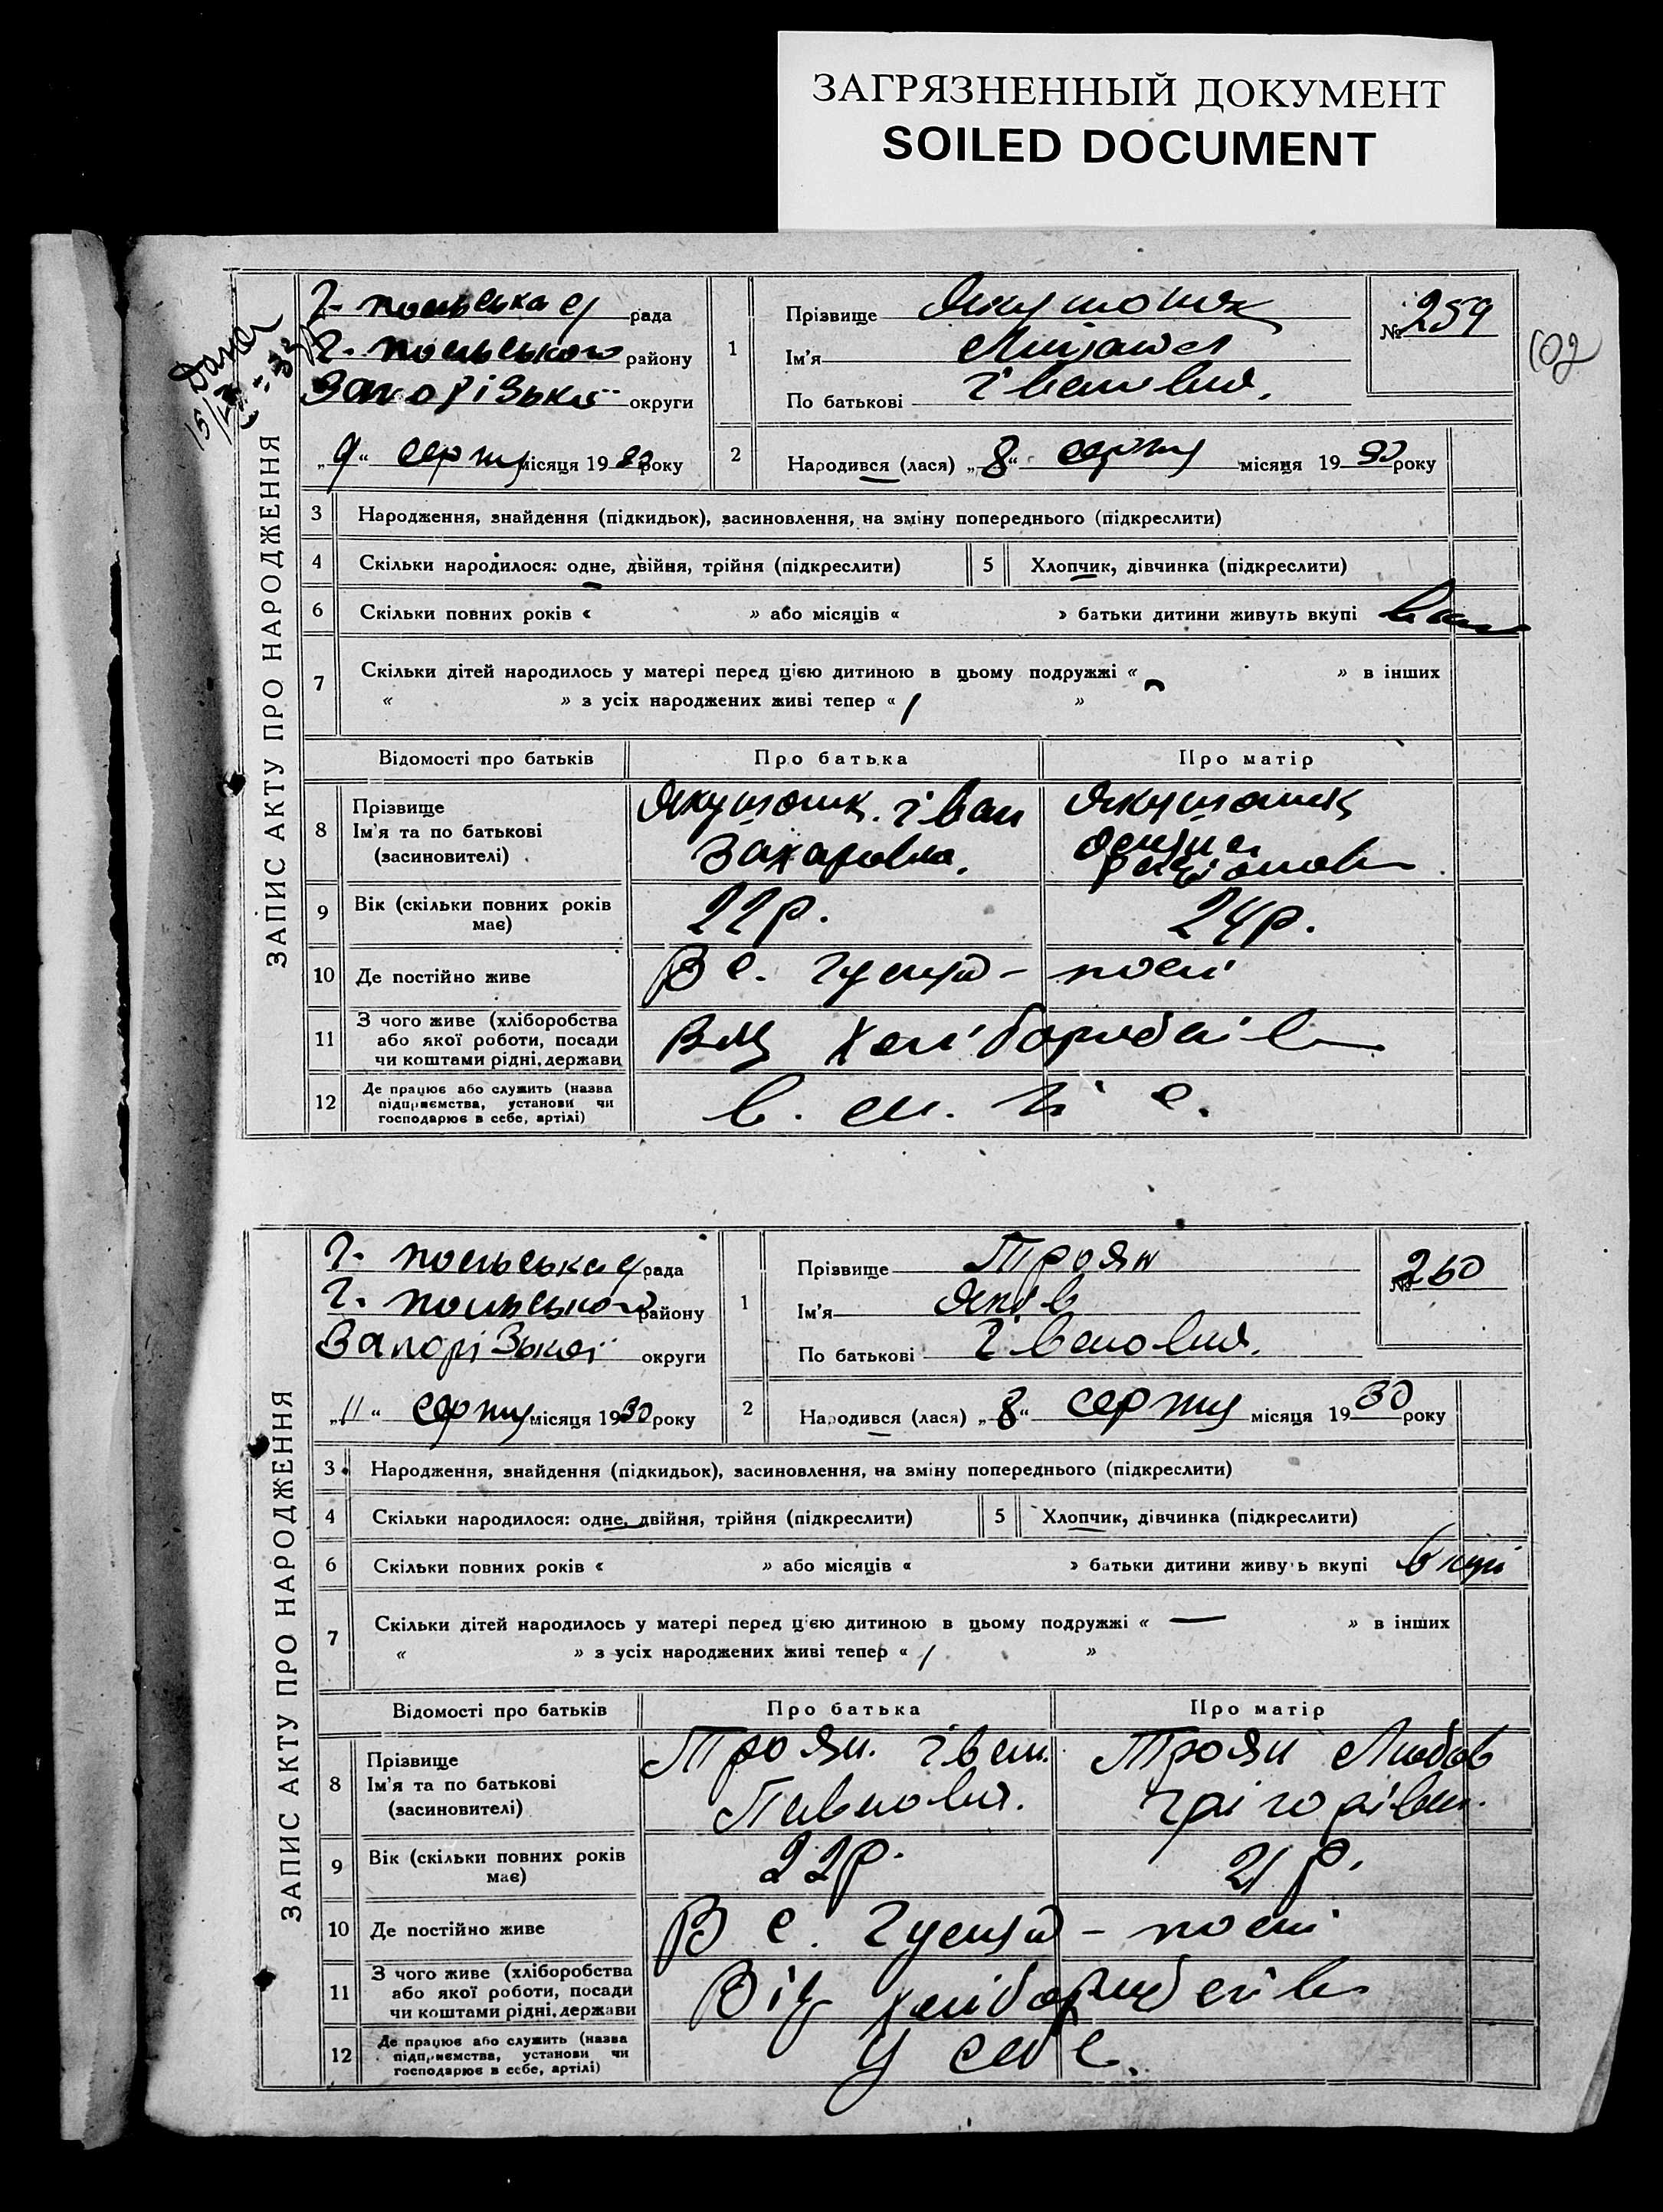 ЗАГРЯЗНЕННЫЙ ДОКУМЕНТ
SOILED DOCUMENT
102
ЗАПИС АКТУ ПРО НАРОДЖЕННЯ
Г- польська рада
Г. польського району
Запорізької округи
„9“ серпня місяця 1930 року
1
Прізвище
Ім'я
По батькові Іванович.
№ 259
2
Народився (лася) „8“ серпня місяця 1930 року
3 Народження, знайдення (підкидьок), засиновлення, на зміну попереднього (підкреслити)
4 Скільки народилося: одне, двійня, трійня (підкреслити)
5 Хлопчик, дівчинка (підкреслити)
6 Скільки повних років « » або місяців « » батьки дитини живуть вкупі вкупі
7 Скільки дітей народилось у матері перед цією дитиною в цьому подружжі « - » в інших
« » з усіх народжених живі тепер « 1 »
Відомості про батьків Про батька Про матір
8 Прізвище
Ім'я та по батькові
(засиновителі)
Іван
Захарович.
9 Вік (скільки повних років має) 22 р. 24 р.
10 Де постійно живе В с. Гуляй-полі
11 З чого живе (хліборобства
або якої роботи, посади
чи коштами рідні, держави
Від хліборобства
12 Де працює або служить (назва
підприємства, установи чи
господарює в себе, артілі)
ЗАПИС АКТУ ПРО НАРОДЖЕННЯ
Г- польська рада
Г. польського району
Запорізької округи
„11“ серпня місяця 1930 року
1
Прізвище Троян
Ім'я Яків
По батькові Іванович.
№ 260
2
Народився (лася) „8“ серпня місяця 1930 року
3 Народження, знайдення (підкидьок), засиновлення, на зміну попереднього (підкреслити)
4 Скільки народилося: одне, двійня, трійня (підкреслити)
5 Хлопчик, дівчинка (підкреслити)
6 Скільки повних років « » або місяців « » батьки дитини живуть вкупі вкупі
7 Скільки дітей народилось у матері перед цією дитиною в цьому подружжі « — » в інших
« » з усіх народжених живі тепер « 1 »
Відомості про батьків Про батька Про матір
8 Прізвище
Ім'я та по батькові
(засиновителі)
Троян Іван
Павлович.
Троян Любов
Грігорівна.
9 Вік (скільки повних років має) 22 р. 21 р.
10 Де постійно живе В с. Гуляй-полі
11 З чого живе (хліборобства
або якої роботи, посади
чи коштами рідні, держави
Від хліборобства
12 Де працює або служить (назва
підприємства, установи чи
господарює в себе, артілі)
У себе.